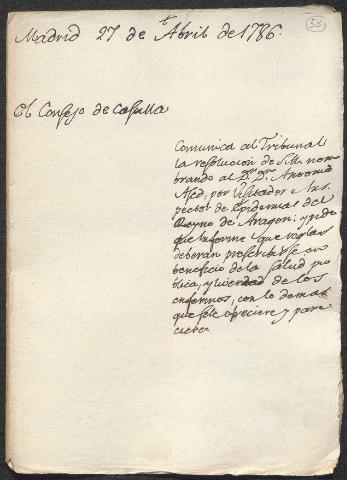 58
Madrid 27 de Abril de 1786.
El Consejo de Castilla
Comunica al Tribunal
la resolucion de S.M. nom
brando al Dr. Dn. Antonio
Ased, por Visitador e Ins
pector de Epidemias del
Reyno de Aragon; y pide
que Informe que reglas
deberan prescribirse en
beneficio de la Salud pu
blica, y livertad de los
enfermos, con lo demas
que se le ofreciere y pare
ciere